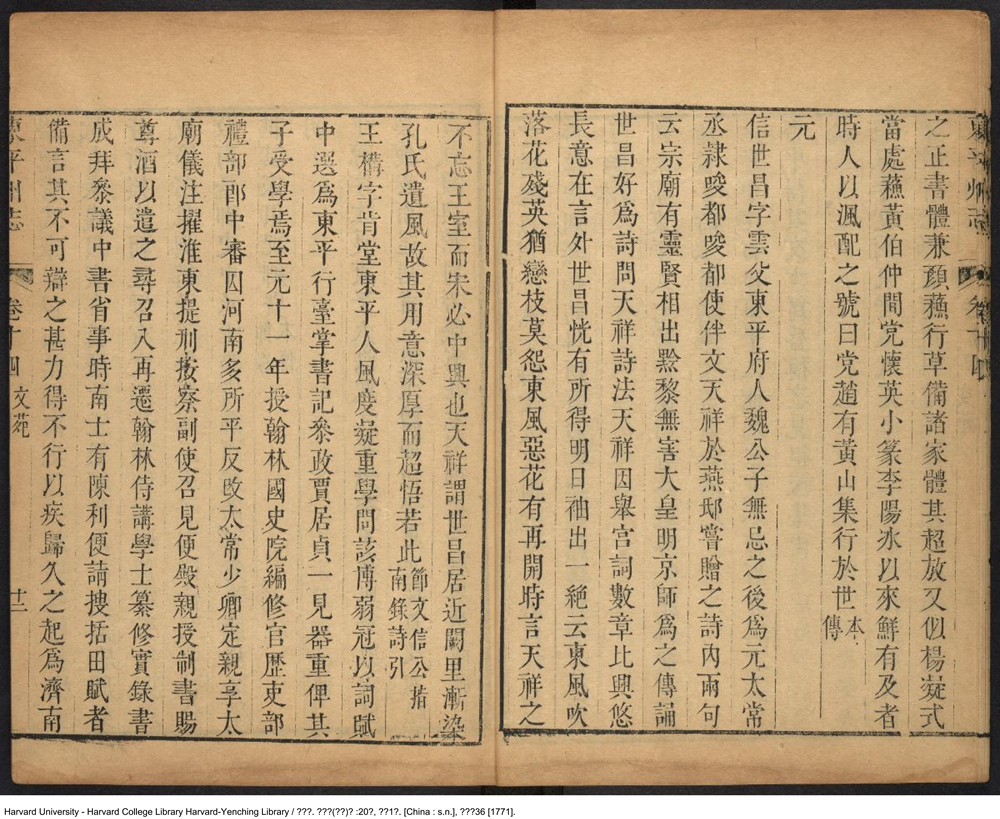 東平州志 卷十四
之正書體兼顔蘓行草備諸家體其超放又似楊凝式
當處蘓黃伯仲間党懷英小篆李陽氷以來鮮有及者
時人以渢配之號曰党趙有黃山集行於世本傳
元
信世昌字雲父東平府人魏公子無忌之後爲元太常
丞隷唆都唆都使伴文天祥於燕邸嘗贈之詩内兩句
云宗廟有靈賢相出黔黎無害大皇明京師爲之傳誦
世昌好爲詩問天祥詩法天祥因舉宫詞數章比興悠
長意在言外世昌恍有所得明日袖出一絶云東風吹
落花殘英猶戀枝莫怨東風惡花有再開時言天祥之
不忘王室而宋必中興也天祥謂世昌居近闕里漸染
孔氏遺風故其用意深厚而超悟若此節文信公指南錄詩引
王構字肯堂東平人風度凝重學問該博弱冠以詞賦
中選爲東平行臺掌書記叅政賈居貞一見器重俾其
子受學焉至元十一年授翰林國史院編修官歷吏部
禮部郎中審囚河南多所平反改太常少卿定親享太
廟儀注擢淮東提刑按察副使召見便殿親授制書賜
尊酒以遣之尋召入再遷翰林侍講學士纂修實錄書
成拜叅議中書省事時南士有陳利便請搜括田賦者
備言其不可辯之甚力得不行以疾歸久之起爲濟南
東平州志 卷十四 文苑 十二
Harvard University - Harvard College Library Harvard-Yenching Library / ???. ???(??)? :20?, ??1?. [China : s.n.], ???36 [1771].